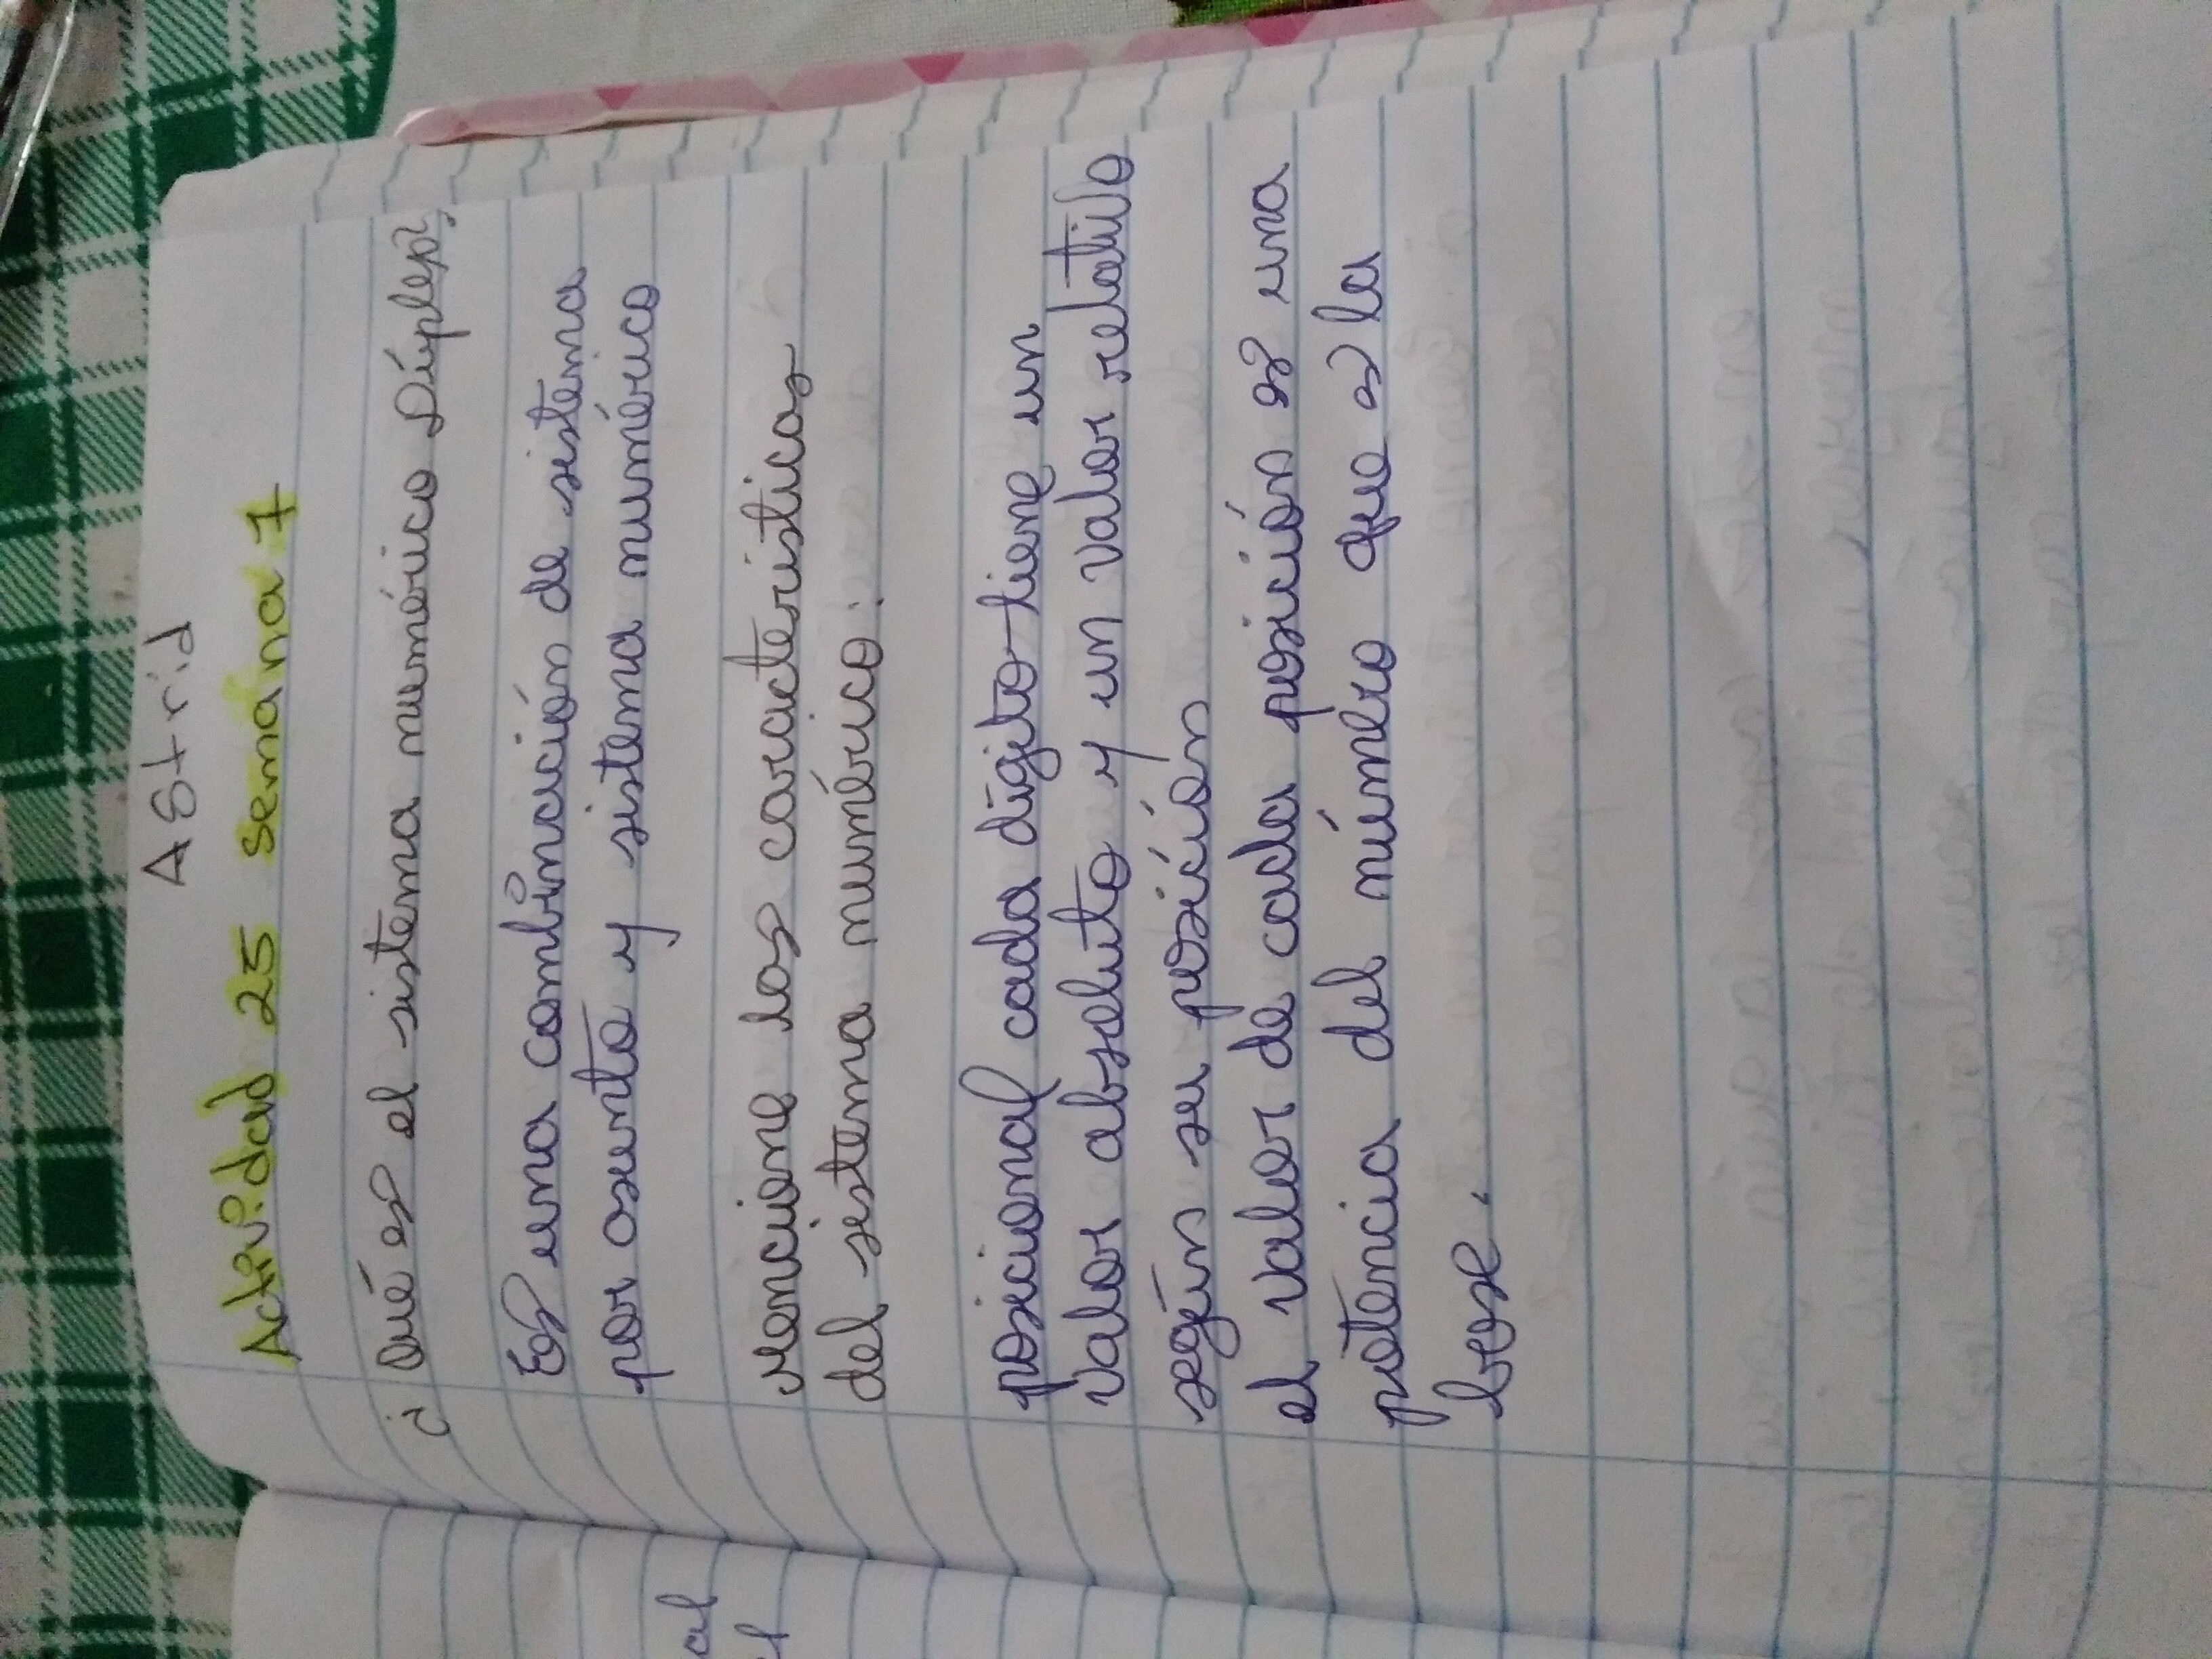 Astrid
Actividad 25 semana 7
¿Qué es el sistema numérico Díplex?
Es una combinación de sistema
por asunto y sistema numérico
Mencione las caracteristicas
del sistema numérico:
posicional cada digito tiene un
valor absoluto y un valor relativo
según su posición
el valor de cada posición es una
potencia del número que es la
base.
al